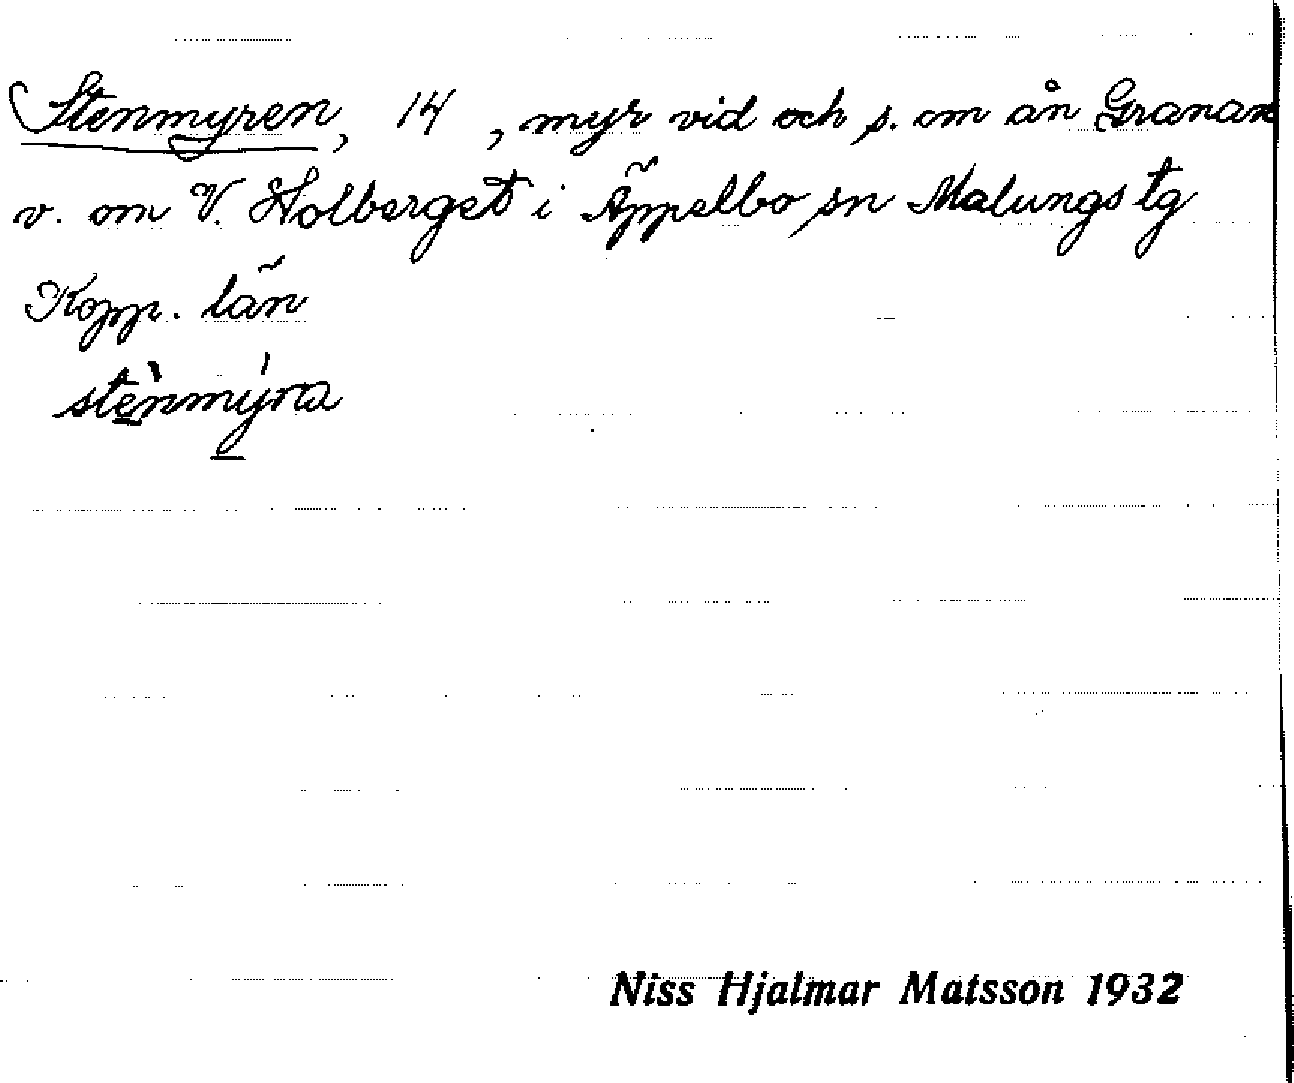 Stenmyren, 14 , myr vid och s. om ån Granan
v. om V. Holberget i Äppelbo sn Malungs tg
Kopp. län
stènmýra
Niss Hjalmar Matsson 1932